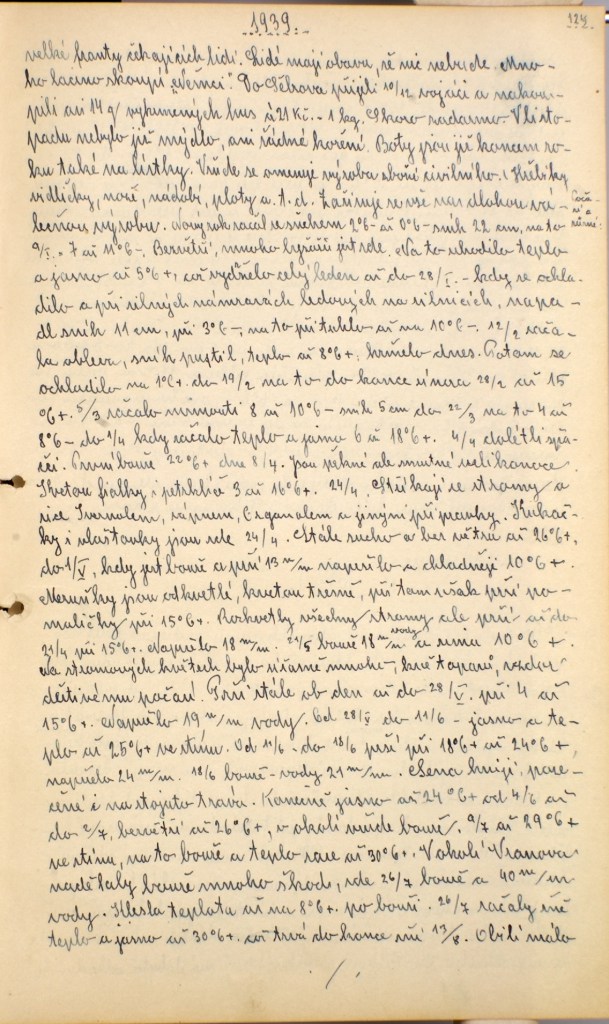 1939.
124
velké fronty čekajících lidí. Lidé mají obava, že nic nebude. Mno-
ho lacino skoupí „Němci". Do přijeli 10/12 vojáci a nakou-
pili asi 14 q vykrmených hus à 21 Kč. - 1 kg. Skoro zadarmo. V listo-
padu nebylo již mýdlo, ani žádné koření. Boty jsou již koncem ro-
ku také na lístky. Všude se omezuje výroba zboží civilního. Hřebíky
vidličky, nože, nádobí, ploty a. t. d. zařizuje se vše na dlouhou vá-
Poča-
sí a
lečnou výrobu. Nový rok začal se sněhem 2°6- až 0°6- sníh 22 cm, na to
9/I. - 7 až 11°6-. Bezvětří, mnoho zde. Na to uhodilo teplo
a jasno až 5°6+, což celý leden až do 28/I. - kdy se ochla-
dilo a při silných námrazách ledových na silnicích, napa-
dl sníh 11 cm, při 3°6-, na to přituhlo až na 10°6-. 12/2 zača-
la obleva, sníh pustil, teplo až 8°6+, hřmělo dnes. Potom se
ochladilo na 1°6+ do 19/2 na to do konce února 28/2 až 15
°6+. 5/3 začalo mrznouti 8 až 10°6- sníh 5 cm do 22/3 na to 4 až
8°6- do 1/4 kdy začalo teplo a jasno 6 až 18°6+. 4/4 dolétli špa-
čci. První bouře 22°6+ dne 8/4. Jsou pěkné ale smutné velikonoce.
Kvetou fialky i petrklíč 3 až 16°6+. 24/4. Stříkají se stromy a
sice vápnem, a jinými přípravky. Kukač-
ky i vlaštovky jsou zde 24/4. Stále sucho a bez větrů až 26°6+,
do 1/V, kdy jest bouře a prší 13 m/m napršelo a chladněji 10°6+.
Meruňky jsou odkvetlé, kvetou třešně, při tom však prší po-
maličky při 15°6+. Rozkvetly všechny stromy ale prší až do
21/4 při 15°6+. Napršelo 18 m/m. 21/5 bouře 18 m/m vody a zima 10°6+.
Na stromových květech bylo úžasně mnoho, vzdor
deštivému počasí. Prší stále ob den až do 28/V. při 4 až
15°6+. Napršelo 19 m/m vody. Od 28/V do 11/6 - jasno a te-
plo až 25°6+ ve stínu. Od 11/6 - do 18/6 prší při 18°6+ až 24°6+,
napršelo 24 m/m. 18/6 bouře - vody 21 m/m. Sena hnijí, pose-
čené i na stojato tráva. Konečně jasno až 24°6+ od 4/6 až
do 2/7, bezvětří až 26°6+, v okolí všude bouře. 9/7 až 29°6+
ve stínu, na to bouře a teplo zase až 30°6+. V okolí Vranova
nadělaly bouře mnoho škod, zde 26/7 bouře a 40 m/m
vody. Klesla teplota až na 8°6+ po bouři. 26/7 začaly zse
teplo a jasno až 30°6+. což trvá do konce 13/8. Obilí málo
./.